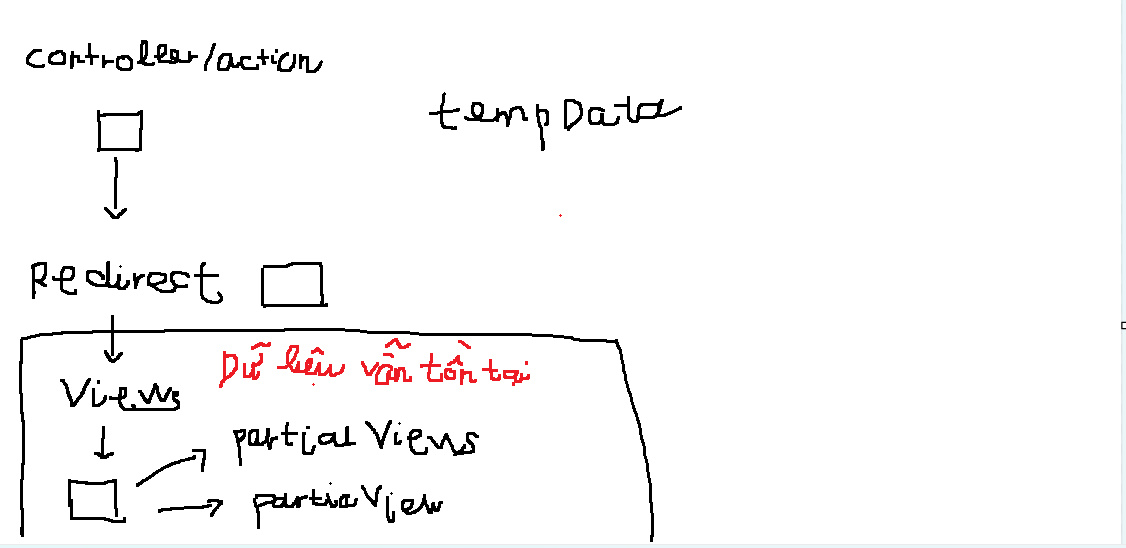 controller/action
tempData
Redirect
Dữ liệu vẫn tồn tại
Views
partial Views
partiaView